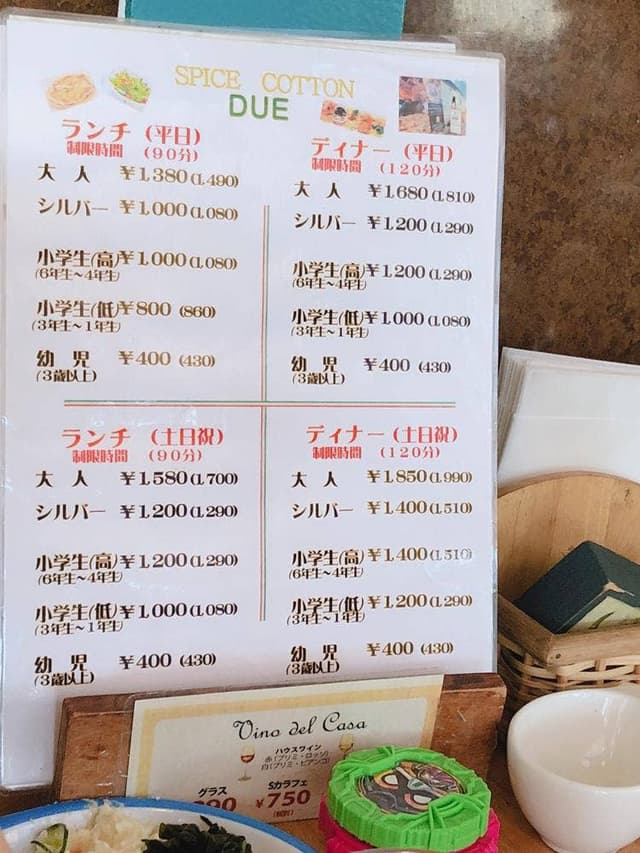 SPICE COTTON
DUE
ランチ (平日)
制限時間 (90分)
大人 ¥1,380(1,490)
シルバー ¥1,000(1,080)
小学生(高)¥1,000(1,080)
(6年生~4年生)
小学生(低)¥800 (860)
(3年生~1年生)
幼児 ¥400 (430)
(3歳以上)
ディナー (平日)
制限時間 (120分)
大人 ¥1,680(1,810)
シルバー ¥1,200(1,290)
小学生(高)¥1,200(1,290)
(6年生~4年生)
小学生(低)¥1,000(1,080)
(3年生~1年生)
幼児 ¥400 (430)
(3歳以上)
ランチ (土日祝)
制限時間 (90分)
大人 ¥1,580(1,700)
シルバー ¥1,200(1,290)
小学生(高)¥1,200(1,290)
(6年生~4年生)
小学生(低)¥1,000(1,080)
(3年生~1年生)
幼児 ¥400 (430)
(3歳以上)
ディナー (土日祝)
制限時間 (120分)
大人 ¥1,850(1,990)
シルバー ¥1,400(1,510)
小学生(高)¥1,400(1,510)
(6年生~4年生)
小学生(低)¥1,200(1,290)
(3年生~1年生)
幼児 ¥400 (430)
(3歳以上)
Vino del Casa
ハウスワイン
赤(プリミ・ロッソ)
白(プリミ・ビアンコ)
グラス Sカラフェ
¥750
(税別)